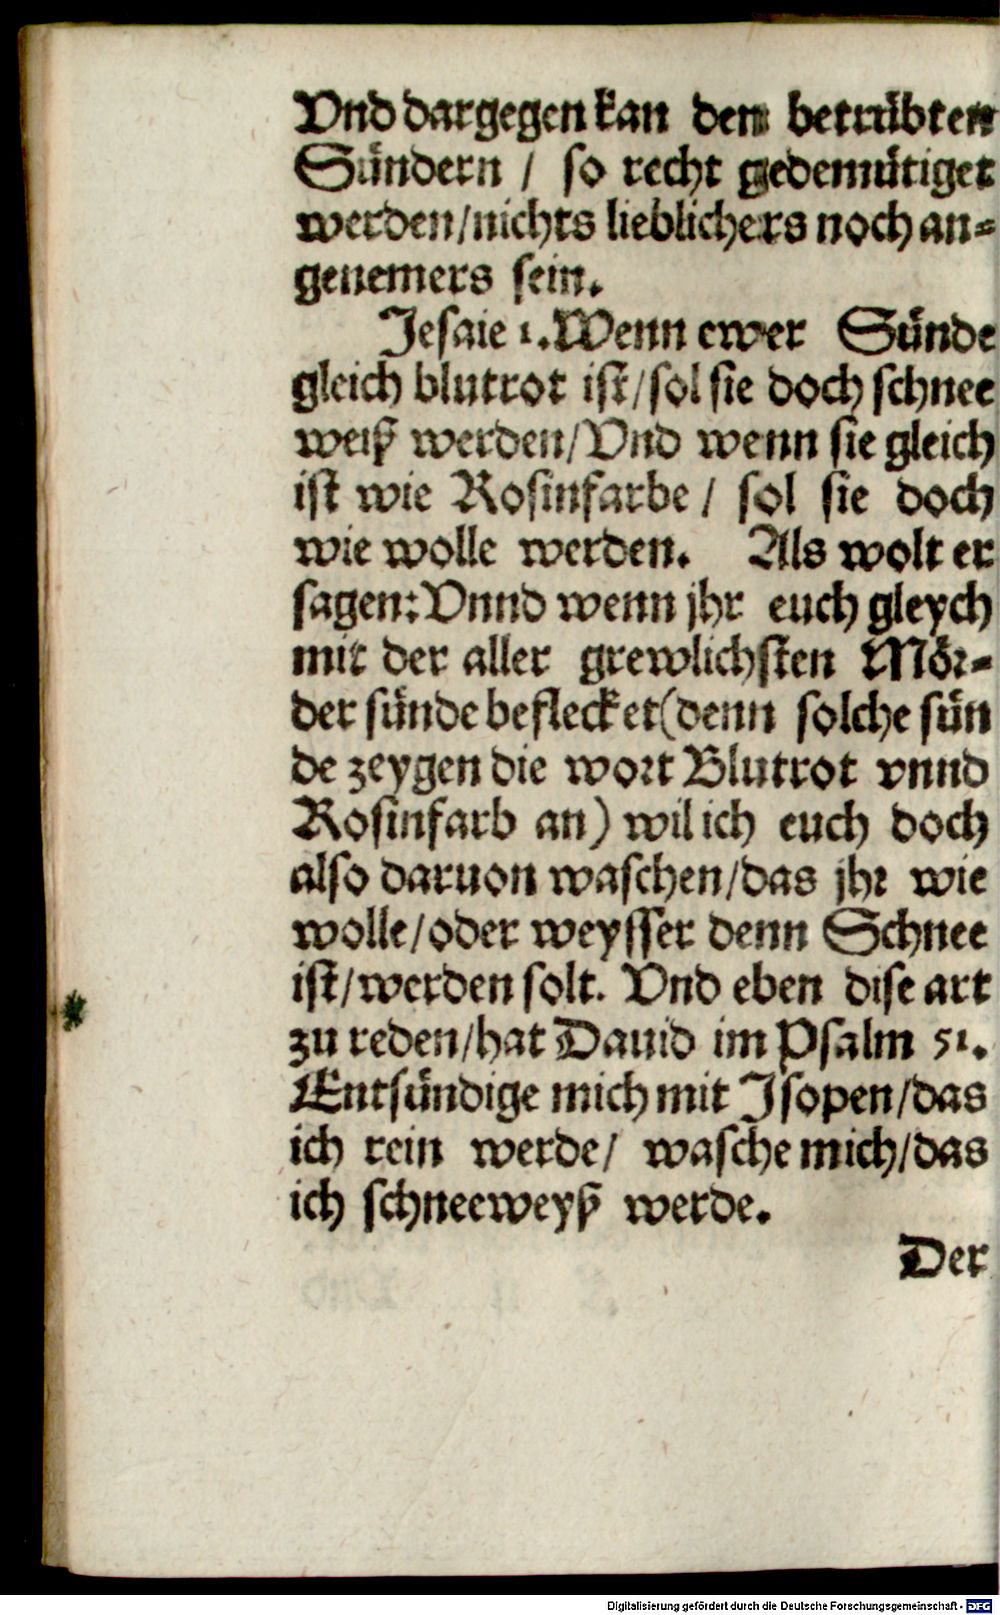 Vnd dargegen kan den betrübten
Sündern / so recht gedemütiget
werden/nichts lieblichers noch an=
genemers sein.
Jesaie 1. Wenn ewer Sünde
gleich blutrot ist/sol sie doch schnee
weiß werden/Vnd wenn sie gleich
ist wie Rosinfarbe / sol sie doch
wie wolle werden. Als wolt er
sagen: Vnnd wenn jhr euch gleych
mit der aller grewlichsten Mör=
der sünde beflecket (denn solche sün
de zeygen die wort Blutrot vnnd
Rosinfarb an) wil ich euch doch
also daruon waschen/das jhr wie
wolle/oder weysser denn Schnee
ist/werden solt. Vnd eben dise art
zu reden/hat Dauid im Psalm 51.
Entsündige mich mit Jsopen/das
ich rein werde/ wasche mich/das
ich schneeweyß werde.
Der
Digitalisierung gefördert durch die Deutsche Forschungsgemeinschaft - DFG